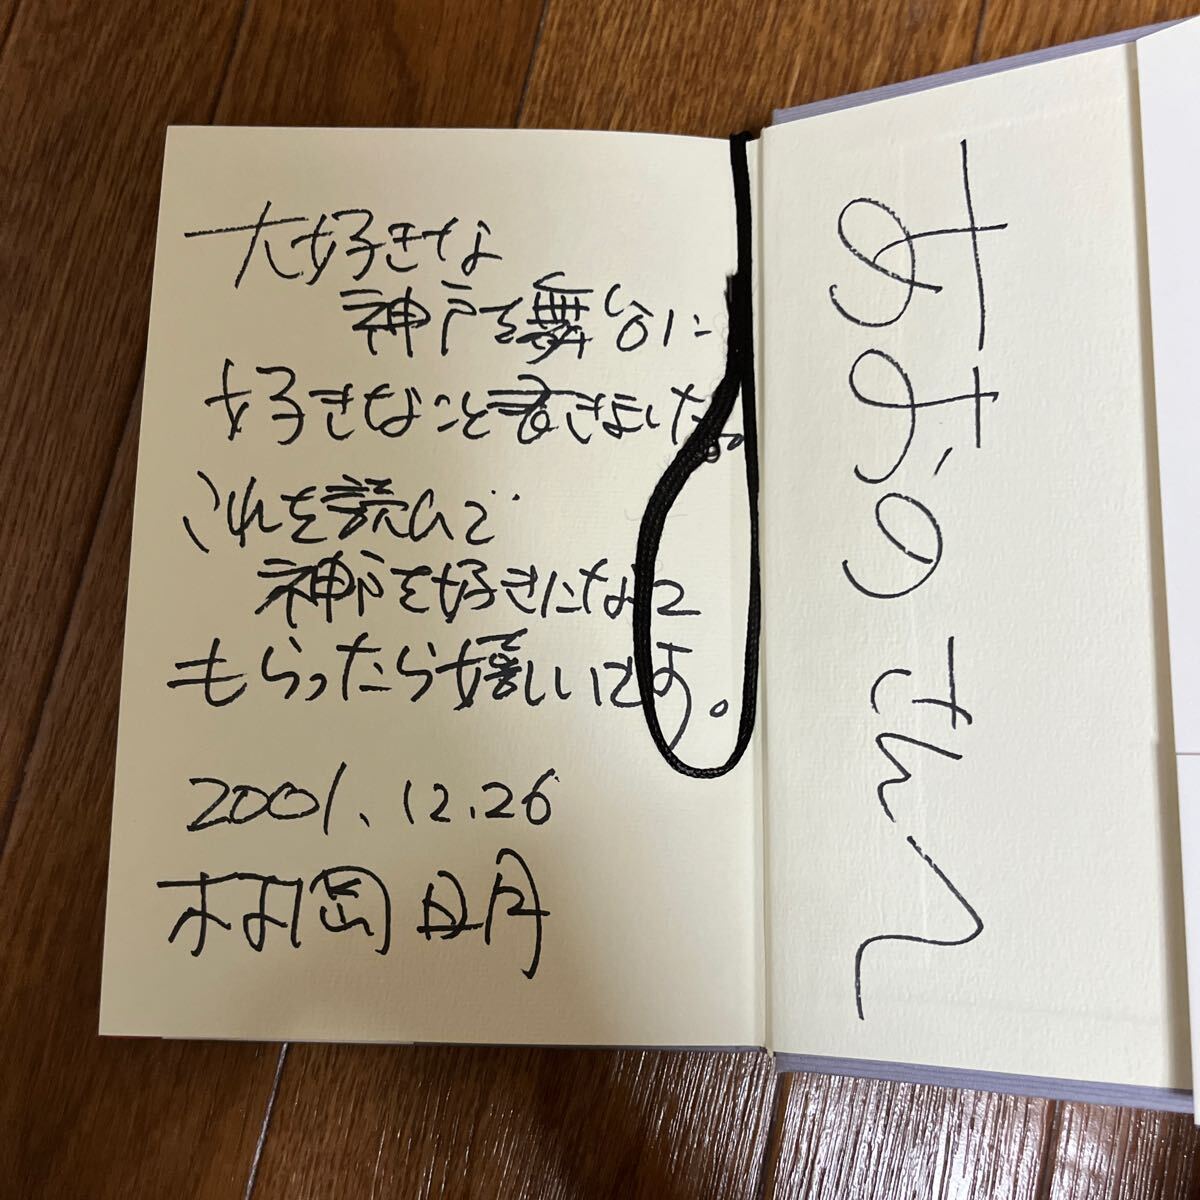 大好きな
神戸を舞台に
好きなこと書きました。
これを読んで
神戸を好きになって
もらったら嬉しいです。
2001.12.26
村岡明
あおのさんへ